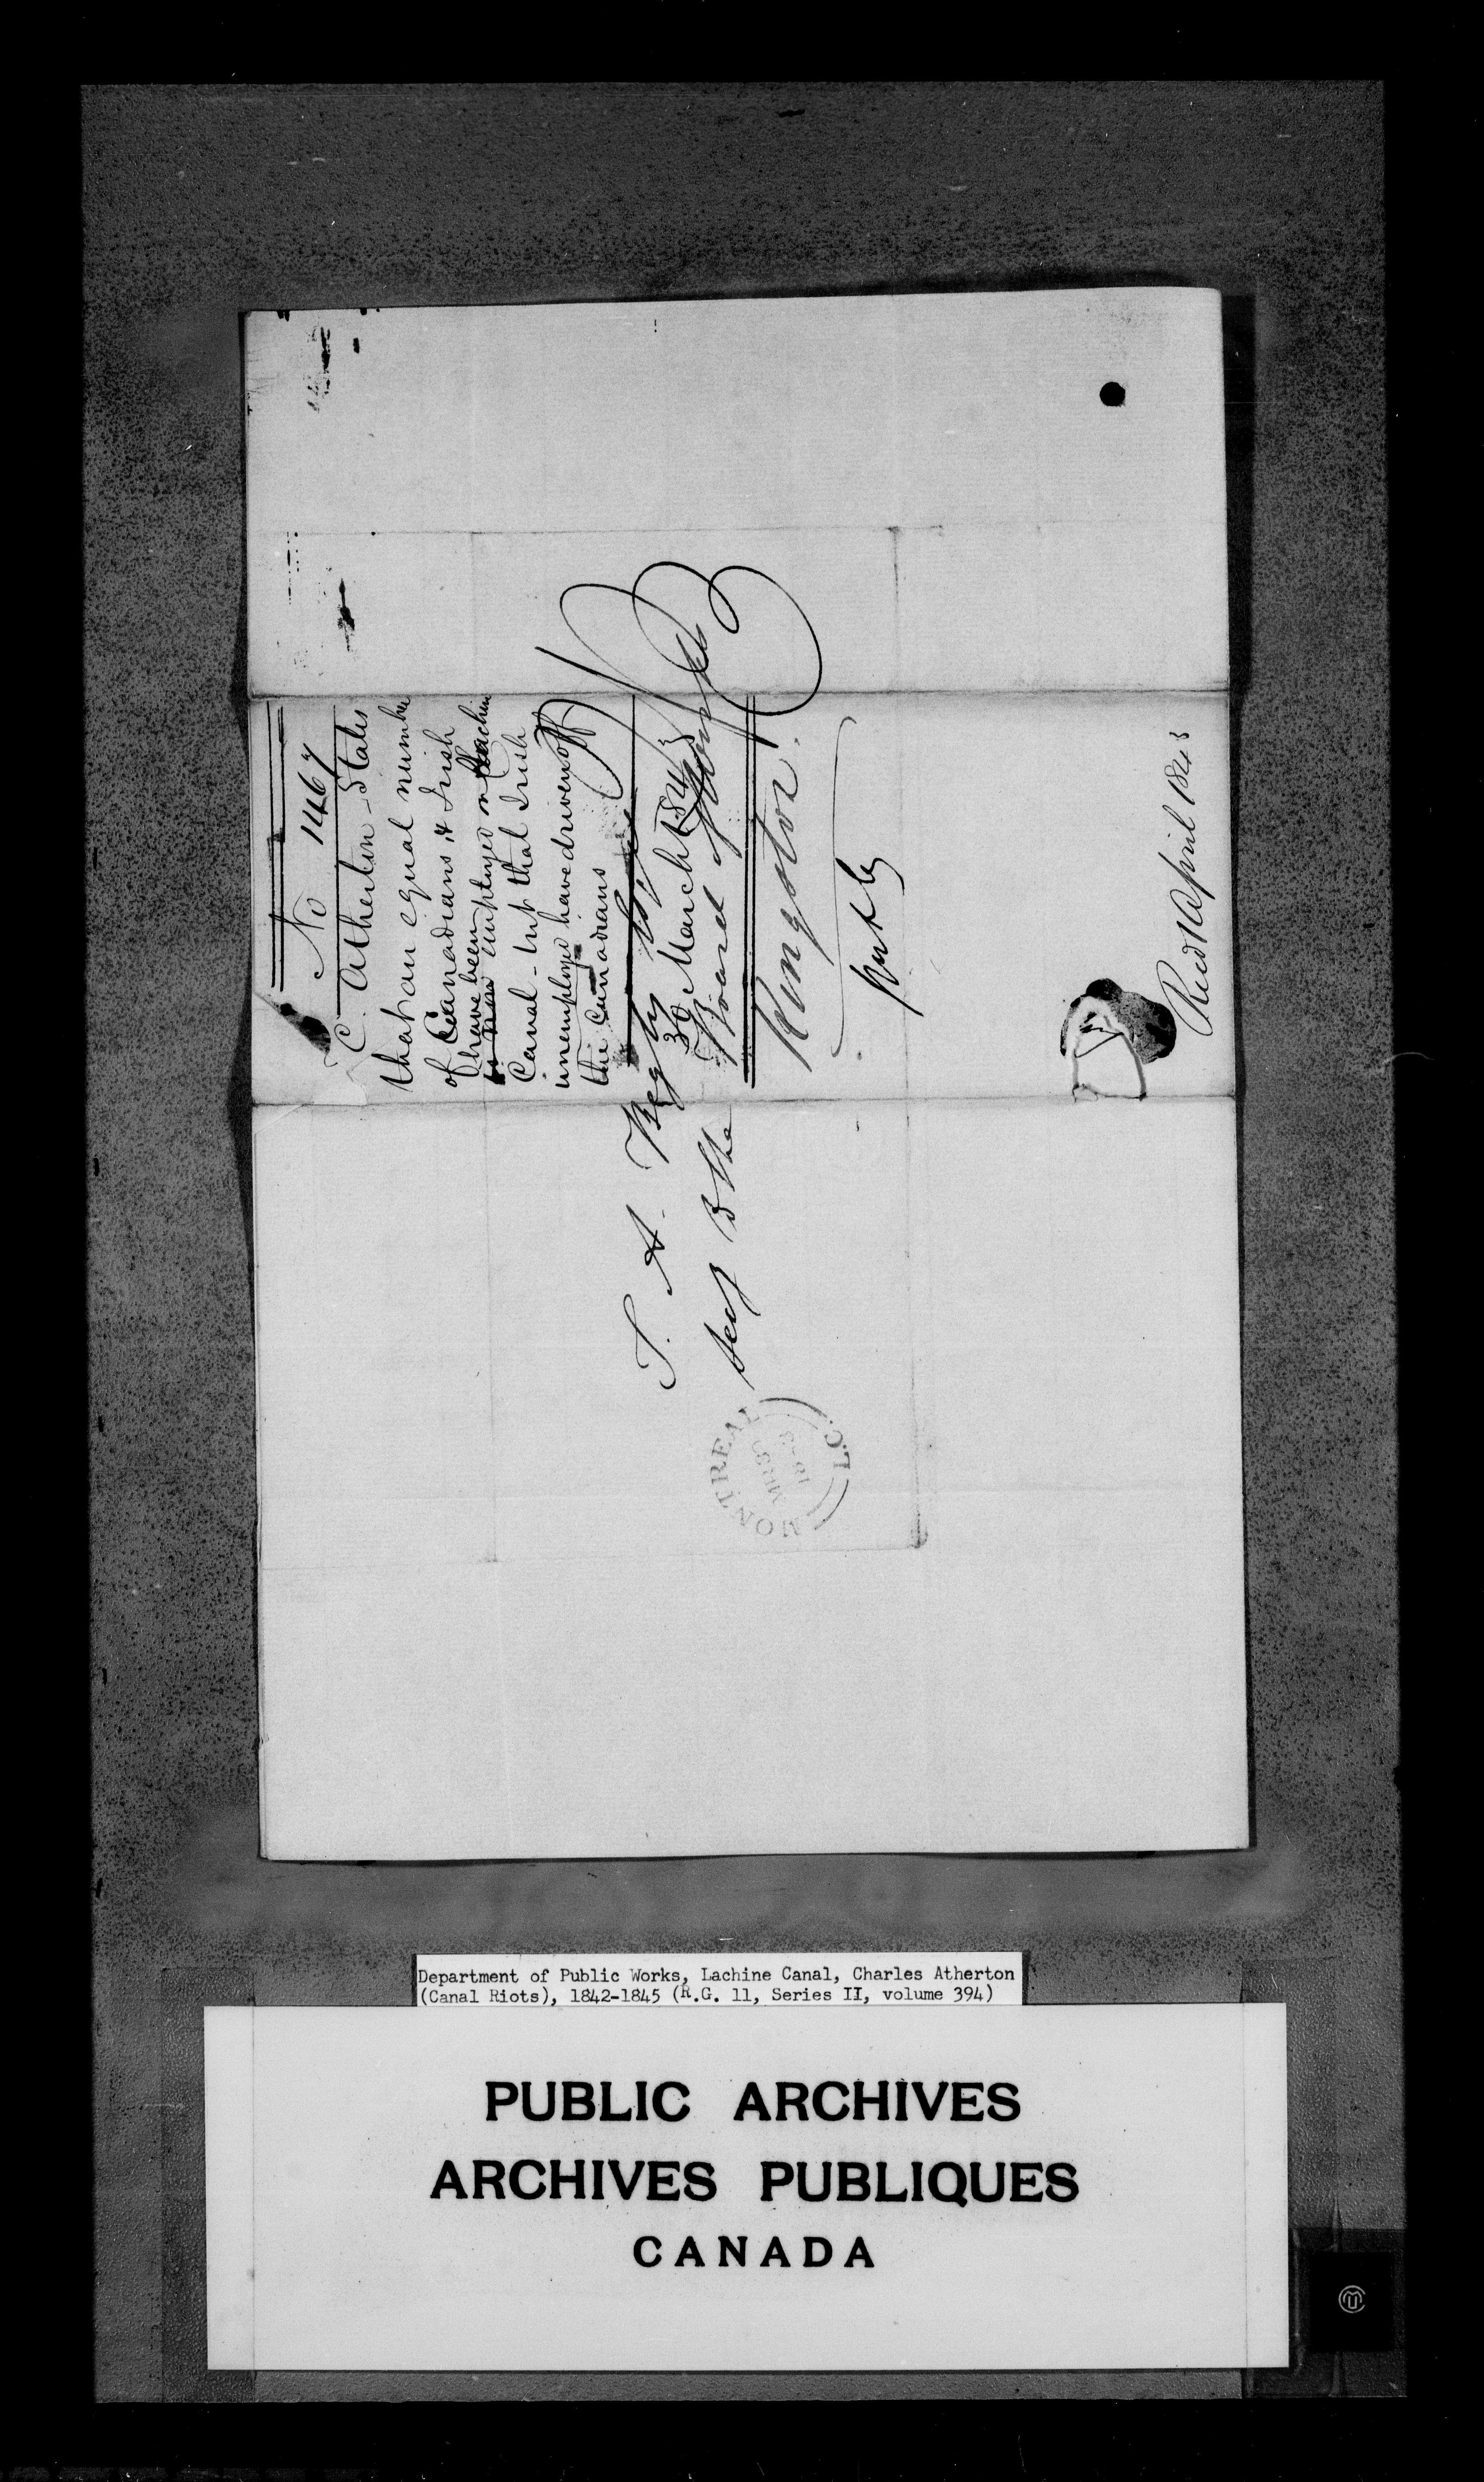 No 1467
C. Atherton - States
that an equal number
of Canadians & Irish
have been
employed on Lachine
Canal - but that Irish
unemployed have driven off
the Canadians
30 March 1843
T. A. Begly
Secy B the
Board of Works
Kingston.
MONTREAL
MR 30
1843
L.C.
Recd 1 April 1843
Department of Public Works, Lachine Canal, Charles Atherton
(Canal Riots), 1842-1845 (R.G. 11, Series II, volume 394)
PUBLIC ARCHIVES
ARCHIVES PUBLIQUES
CANADA